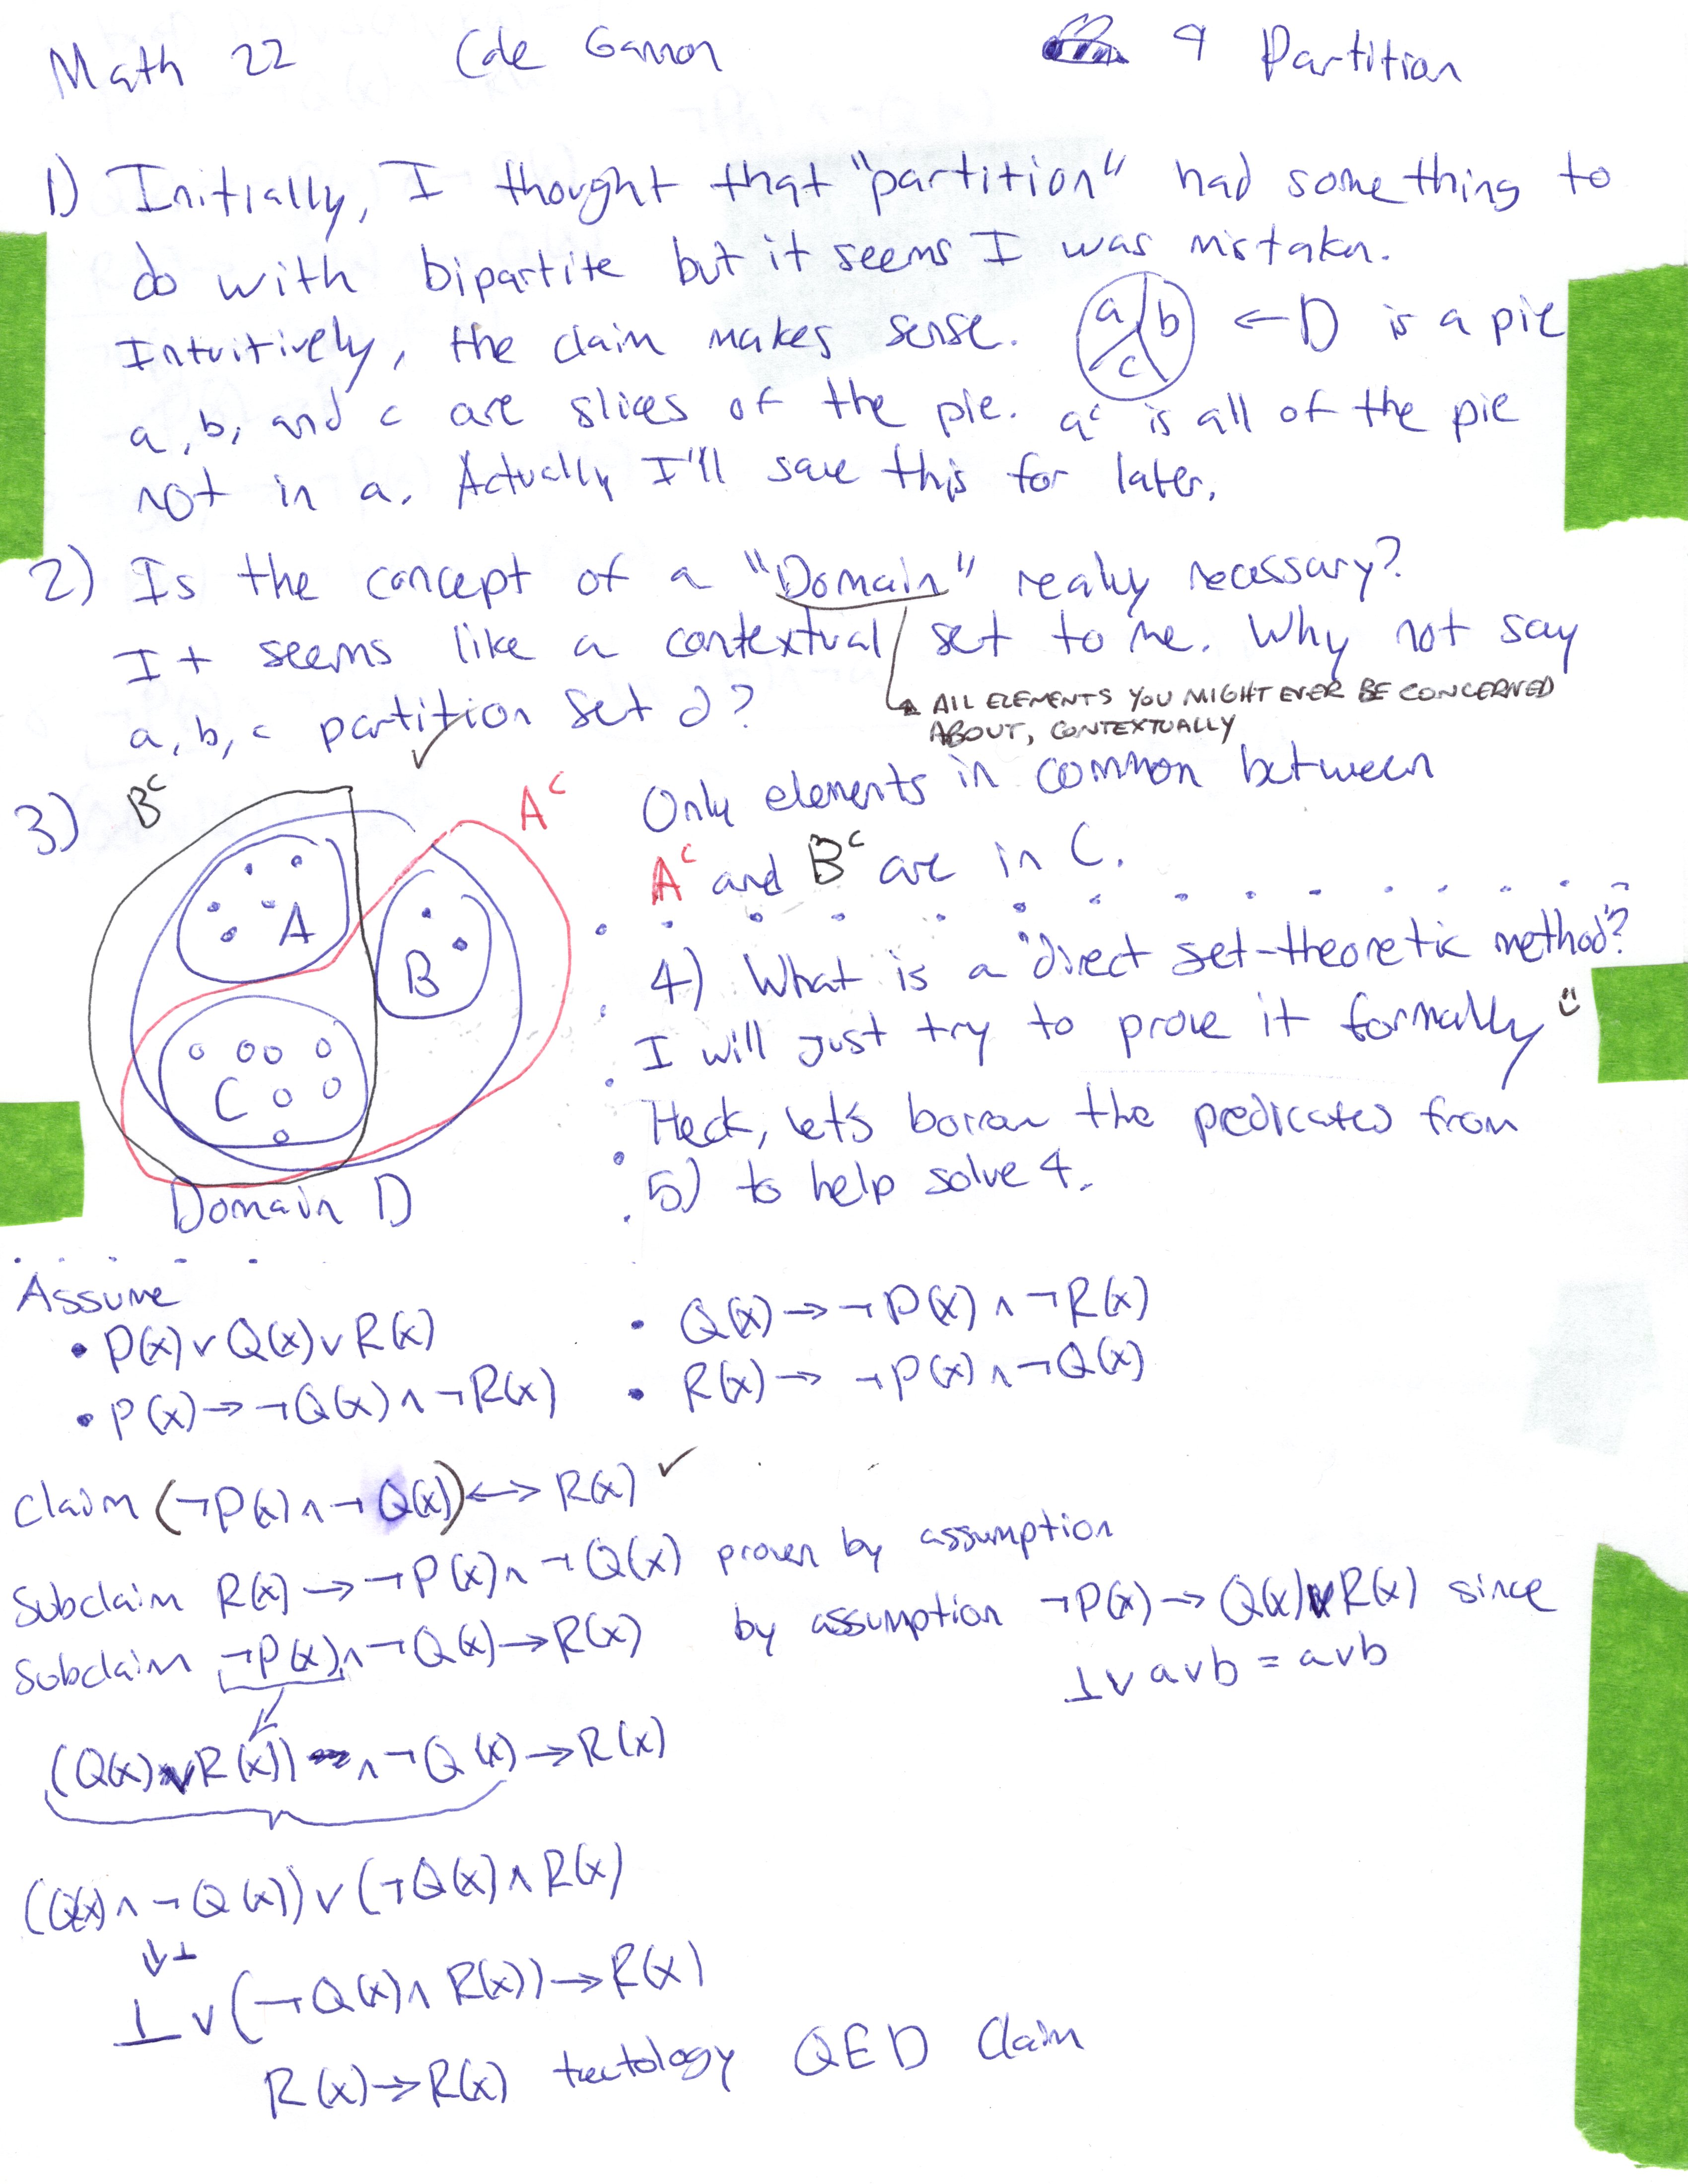 Math 22 Cole Gannon 9 Partition
1) Initially, I thought that "partition" had something to
do with bipartite but it seems I was mistaken.
Intuitively, the claim makes sense. a b c ← D is a pie
a, b, and c are slices of the pie. aᶜ is all of the pie
not in a. Actually I'll save this for later.
2) Is the concept of a "Domain" really necessary?
It seems like a contextual set to me. Why not say
a, b, c partition set d? ✓
ALL ELEMENTS YOU MIGHT EVER BE CONCERNED
ABOUT, CONTEXTUALLY
3) Bᶜ Aᶜ
A
B
C
Domain D
Only elements in common between
Aᶜ and Bᶜ are in C.
4) What is a "direct set-theoretic method"?
I will just try to prove it formally
Heck, let's borrow the predicates from
5) to help solve 4.
Assume
• P(x) ∨ Q(x) ∨ R(x)
• P(x) → ¬Q(x) ∧ ¬R(x)
• Q(x) → ¬P(x) ∧ ¬R(x)
• R(x) → ¬P(x) ∧ ¬Q(x)
Claim (¬P(x) ∧ ¬Q(x)) ↔ R(x) ✓
Subclaim R(x) → ¬P(x) ∧ ¬Q(x) proven by assumption
Subclaim ¬P(x) ∧ ¬Q(x) → R(x) by assumption ¬P(x) → Q(x) ∨ R(x) since
⊥ ∨ a ∨ b = a ∨ b
(Q(x) ∨ R(x)) ∧ ¬Q(x) → R(x)
(Q(x) ∧ ¬Q(x)) ∨ (¬Q(x) ∧ R(x)
⊥ ∨ (¬Q(x) ∧ R(x)) → R(x)
R(x) → R(x) tautology QED Claim